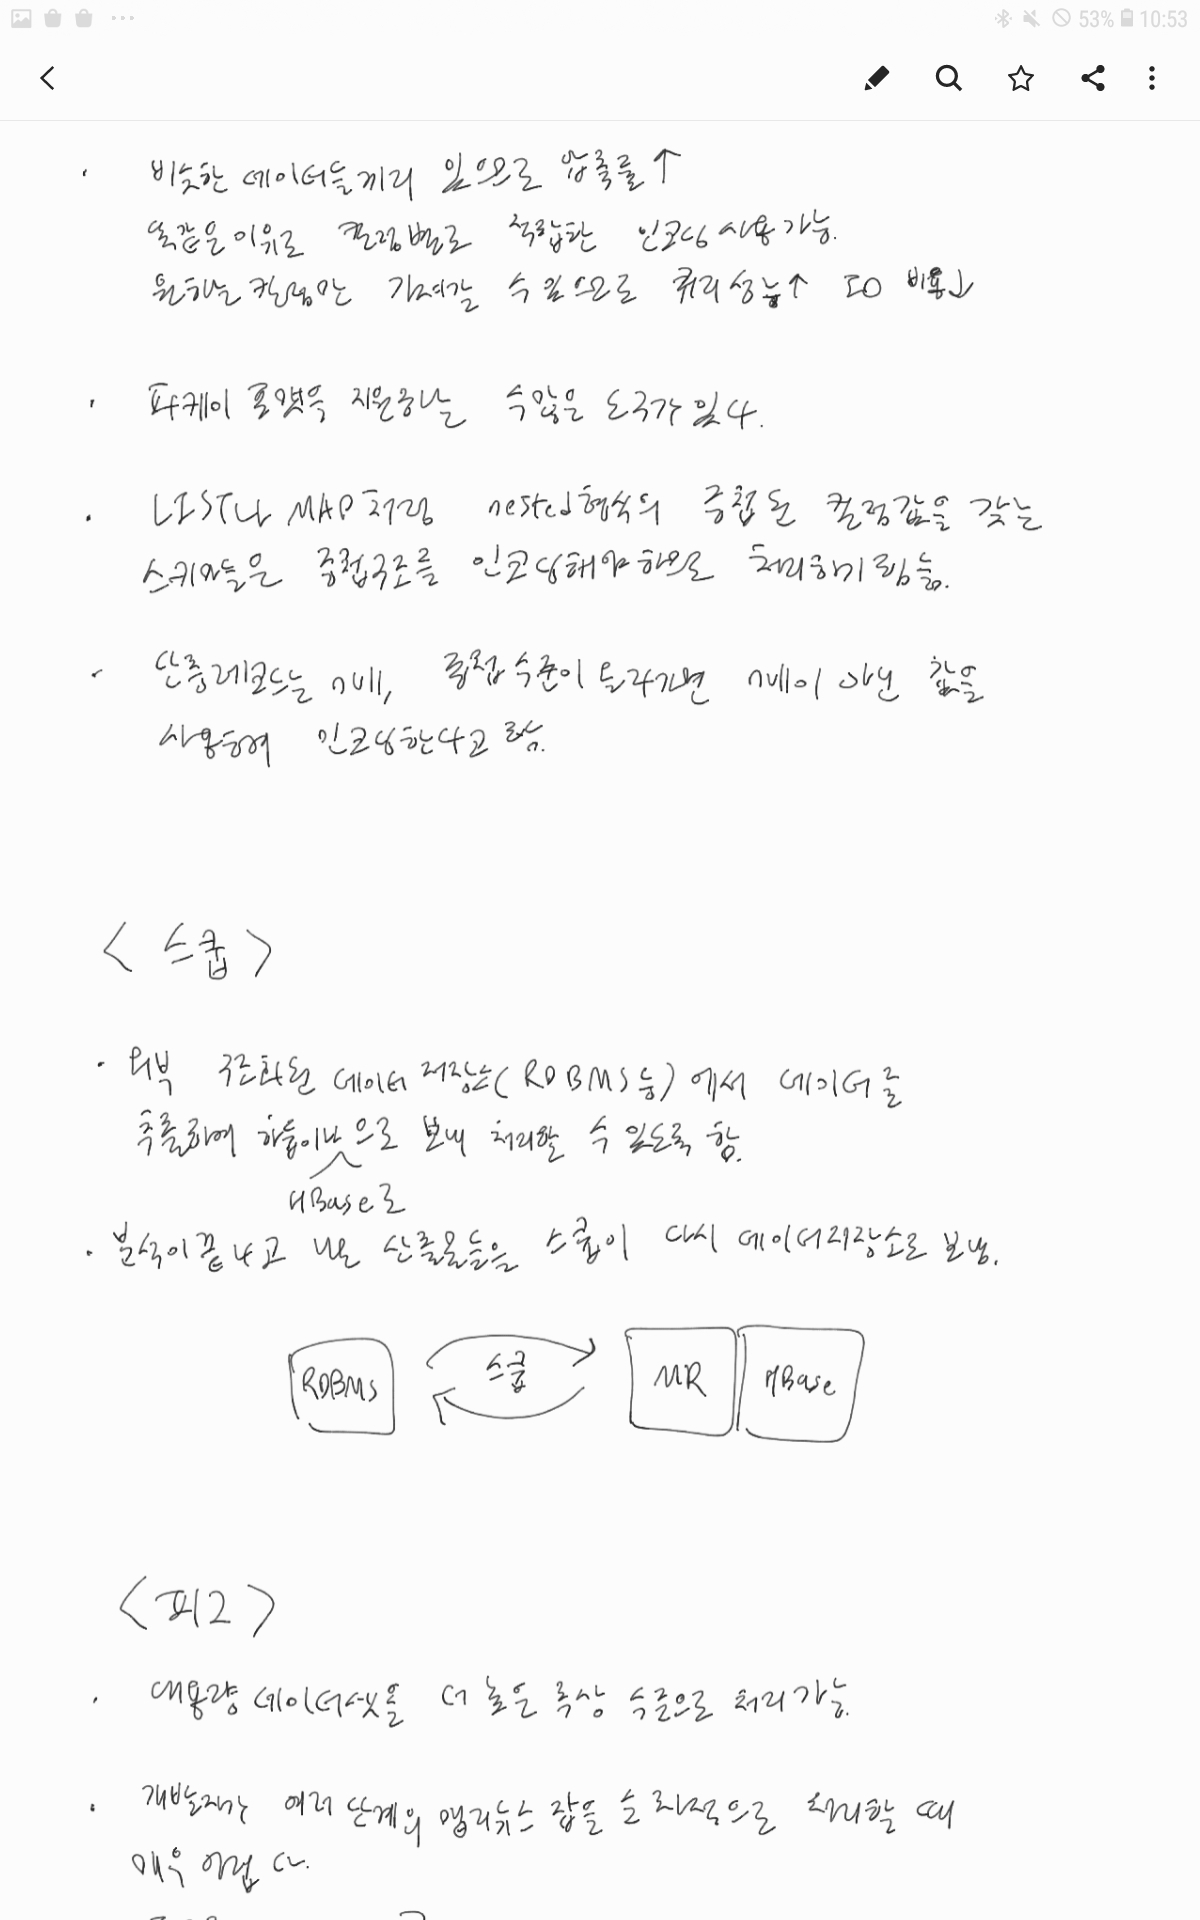 53% 10:53
· 비슷한 데이터들끼리 있으므로 압축률 ↑
똑같은 이유로 컬럼별로 적합한 인코딩 사용가능.
원하는 컬럼만 가져갈 수 있으므로 쿼리성능↑ IO 비용↓
· 파케이 포맷을 지원하는 수많은 도구가 있다.
· LIST나 MAP처럼 nested형식의 중첩된 컬럼값을 갖는
스키마들은 중첩구조를 인코딩해야 하므로 처리하기 힘듦.
· 단층레코드는 개, 중첩 수준이 올라가면 이 아닌 값을
사용하여 인코딩한다고 함.
< 스쿱 >
· 외부 구조화된 데이터 저장소(RDBMS등)에서 데이터를
추출하여 하둡이나 으로 보내 처리할 수 있도록 함.
HBase로
· 분석이 끝나고 나온 산출물들을 스쿱이 다시 데이터저장소로 보냄.
RDBMS 스쿱 MR HBase
< 피그 >
· 대용량 데이터셋을 더 높은 추상 수준으로 처리 가능.
· 개발자가 여러 단계의 맵리듀스 잡을 순차적으로 처리할 때
매우 어렵다.